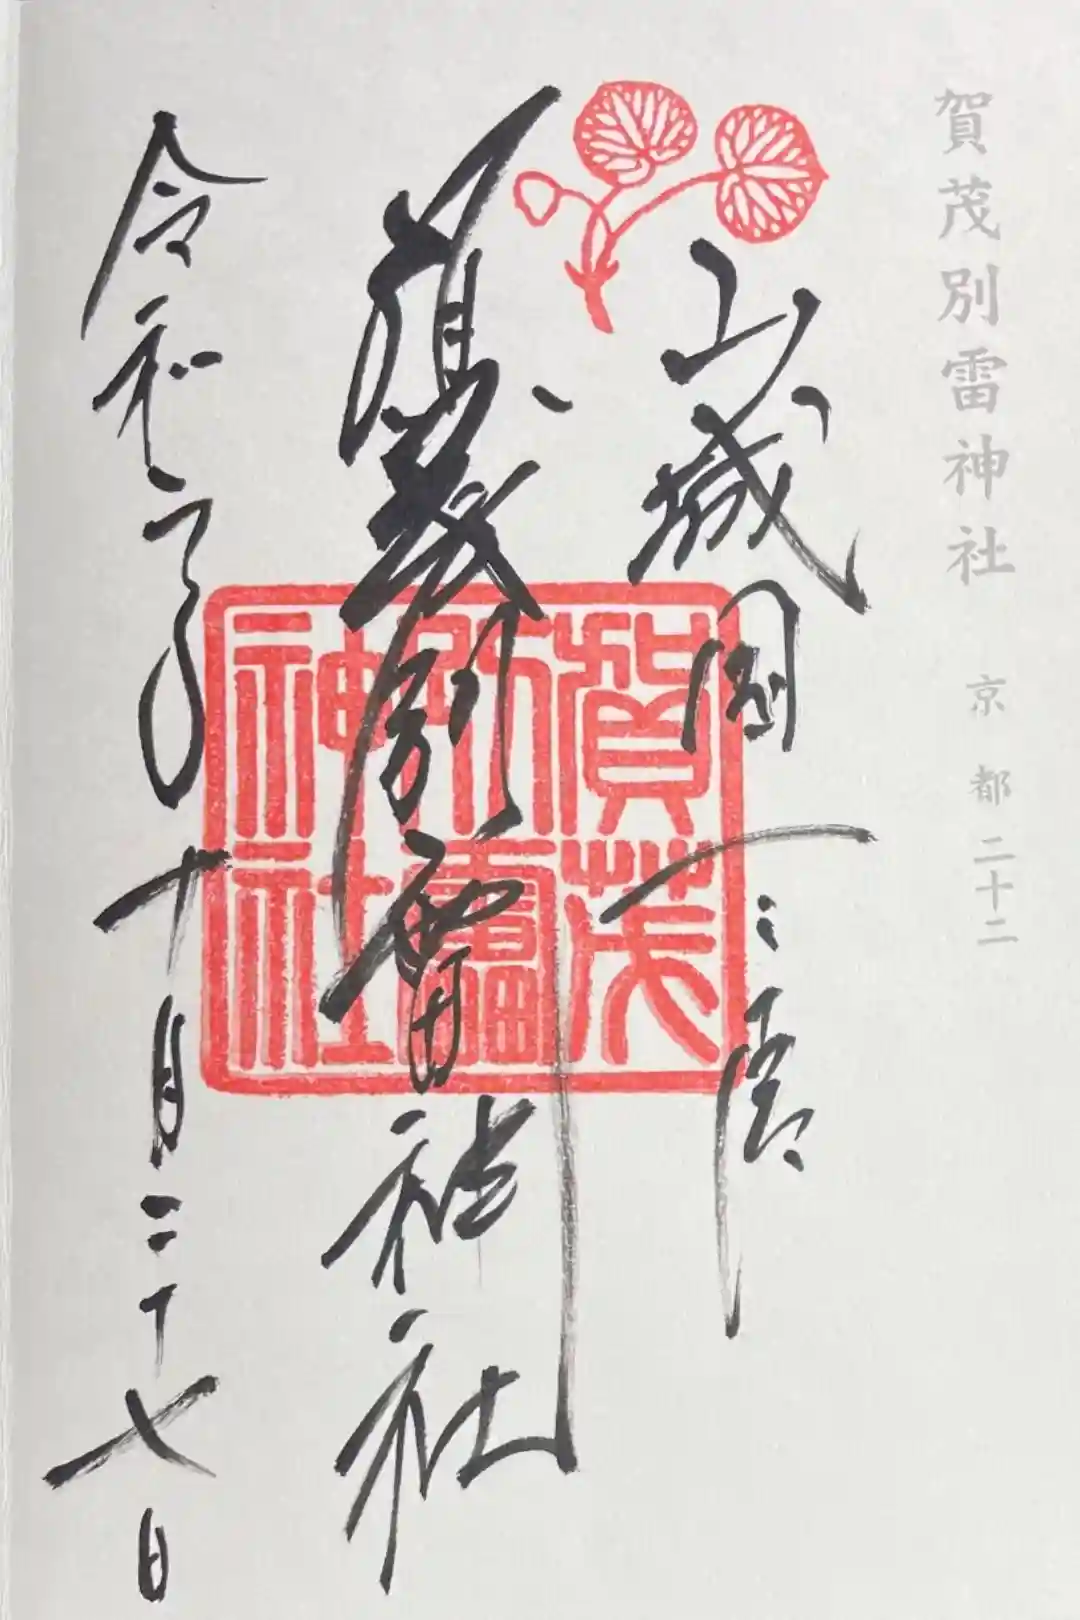 賀茂別雷神社 京都 二十二
山城國一之宮
賀茂別雷神社
令和年十月二十七日
賀茂
別雷
神社